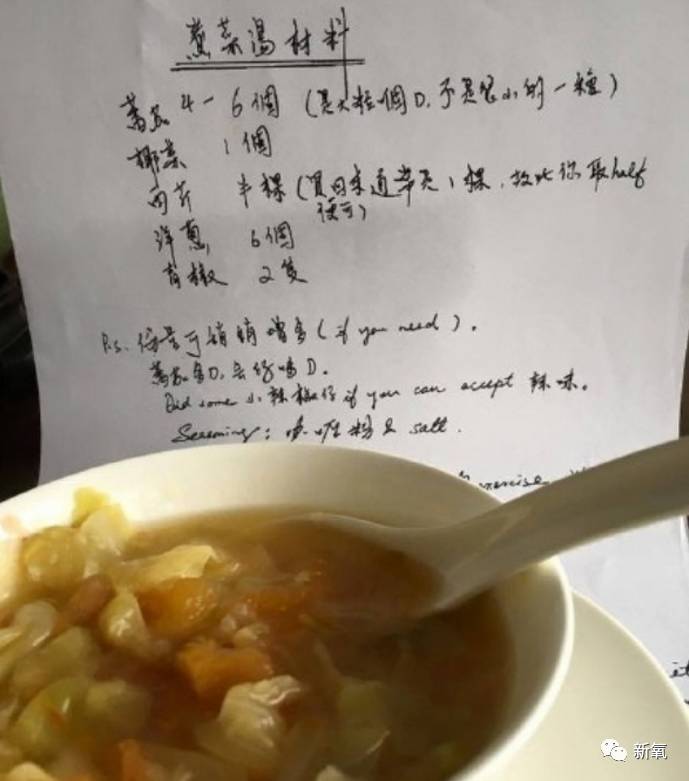 蕃茄 4-6個 (買大粒個D,不是很小的一種)
椰菜 1個
西芹 半棵 (買回來通常是1棵,故此你取half
便可)
洋蔥 6個
青椒 2隻
P.s. 份量可稍稍增多 (if you need).
蕃茄多D,会好味D.
Did some 小辣椒仔 if you can accept 辣味。
Seasoning: 咖喱粉 & salt.
exercise
it
新氧